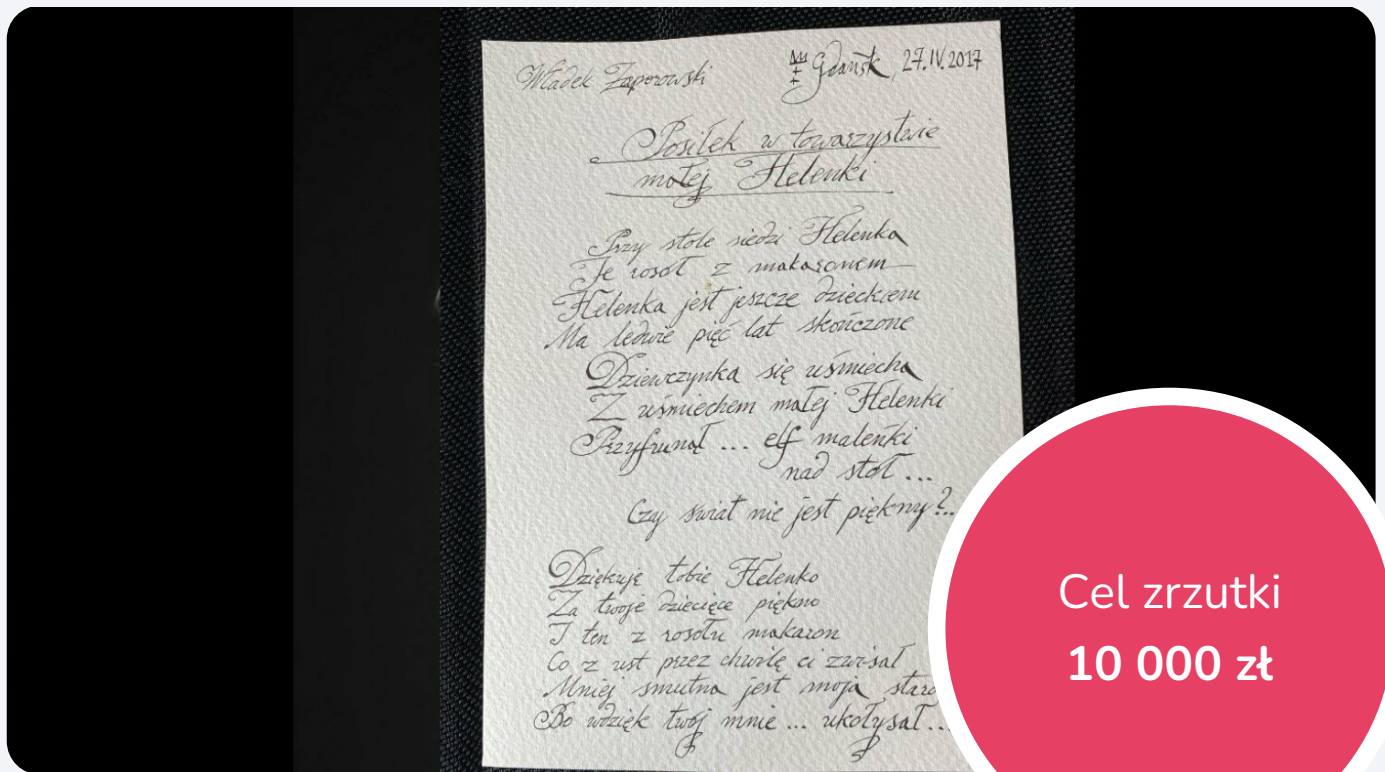 Władek Zaporowski
Gdańsk, 27.IV.2017
Posiłek w towarzystwie
małej Helenki
Przy stole siedzi Helenka
Je rosół z makaronem
Helenka jest jeszcze dzieckiem
Ma ledwie pięć lat skończone
Dziewczynka się uśmiecha
Z uśmiechem małej Helenki
Przyfrunął ... elf maleńki
nad stół ...
Czy świat nie jest piękny?..
Dziękuję tobie Helenko
Za twoje dziecięce piękno
I ten z rosołu makaron
Co z ust przez chwilę ci zwisał
Mniej smutna jest moja
Bo wdzięk twój mnie ... ukołysał...
Cel zrzutki
10 000 zł